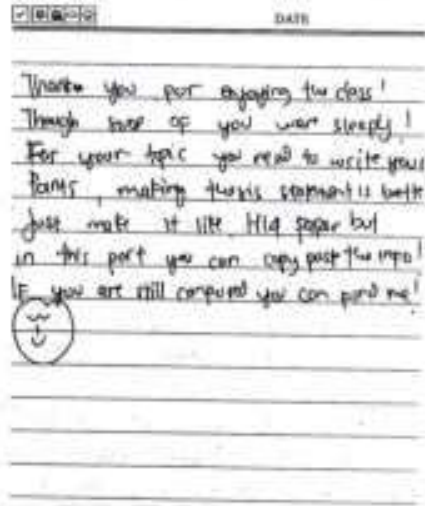 DATE
Thanks you for enjoying the class!
Though some of you were sleepy!
For your topic you need to write your
Points, making thesis statement is bette
Just make it like H14 paper but
in this part you can copy past the info!
IF you are still confused you can find me!